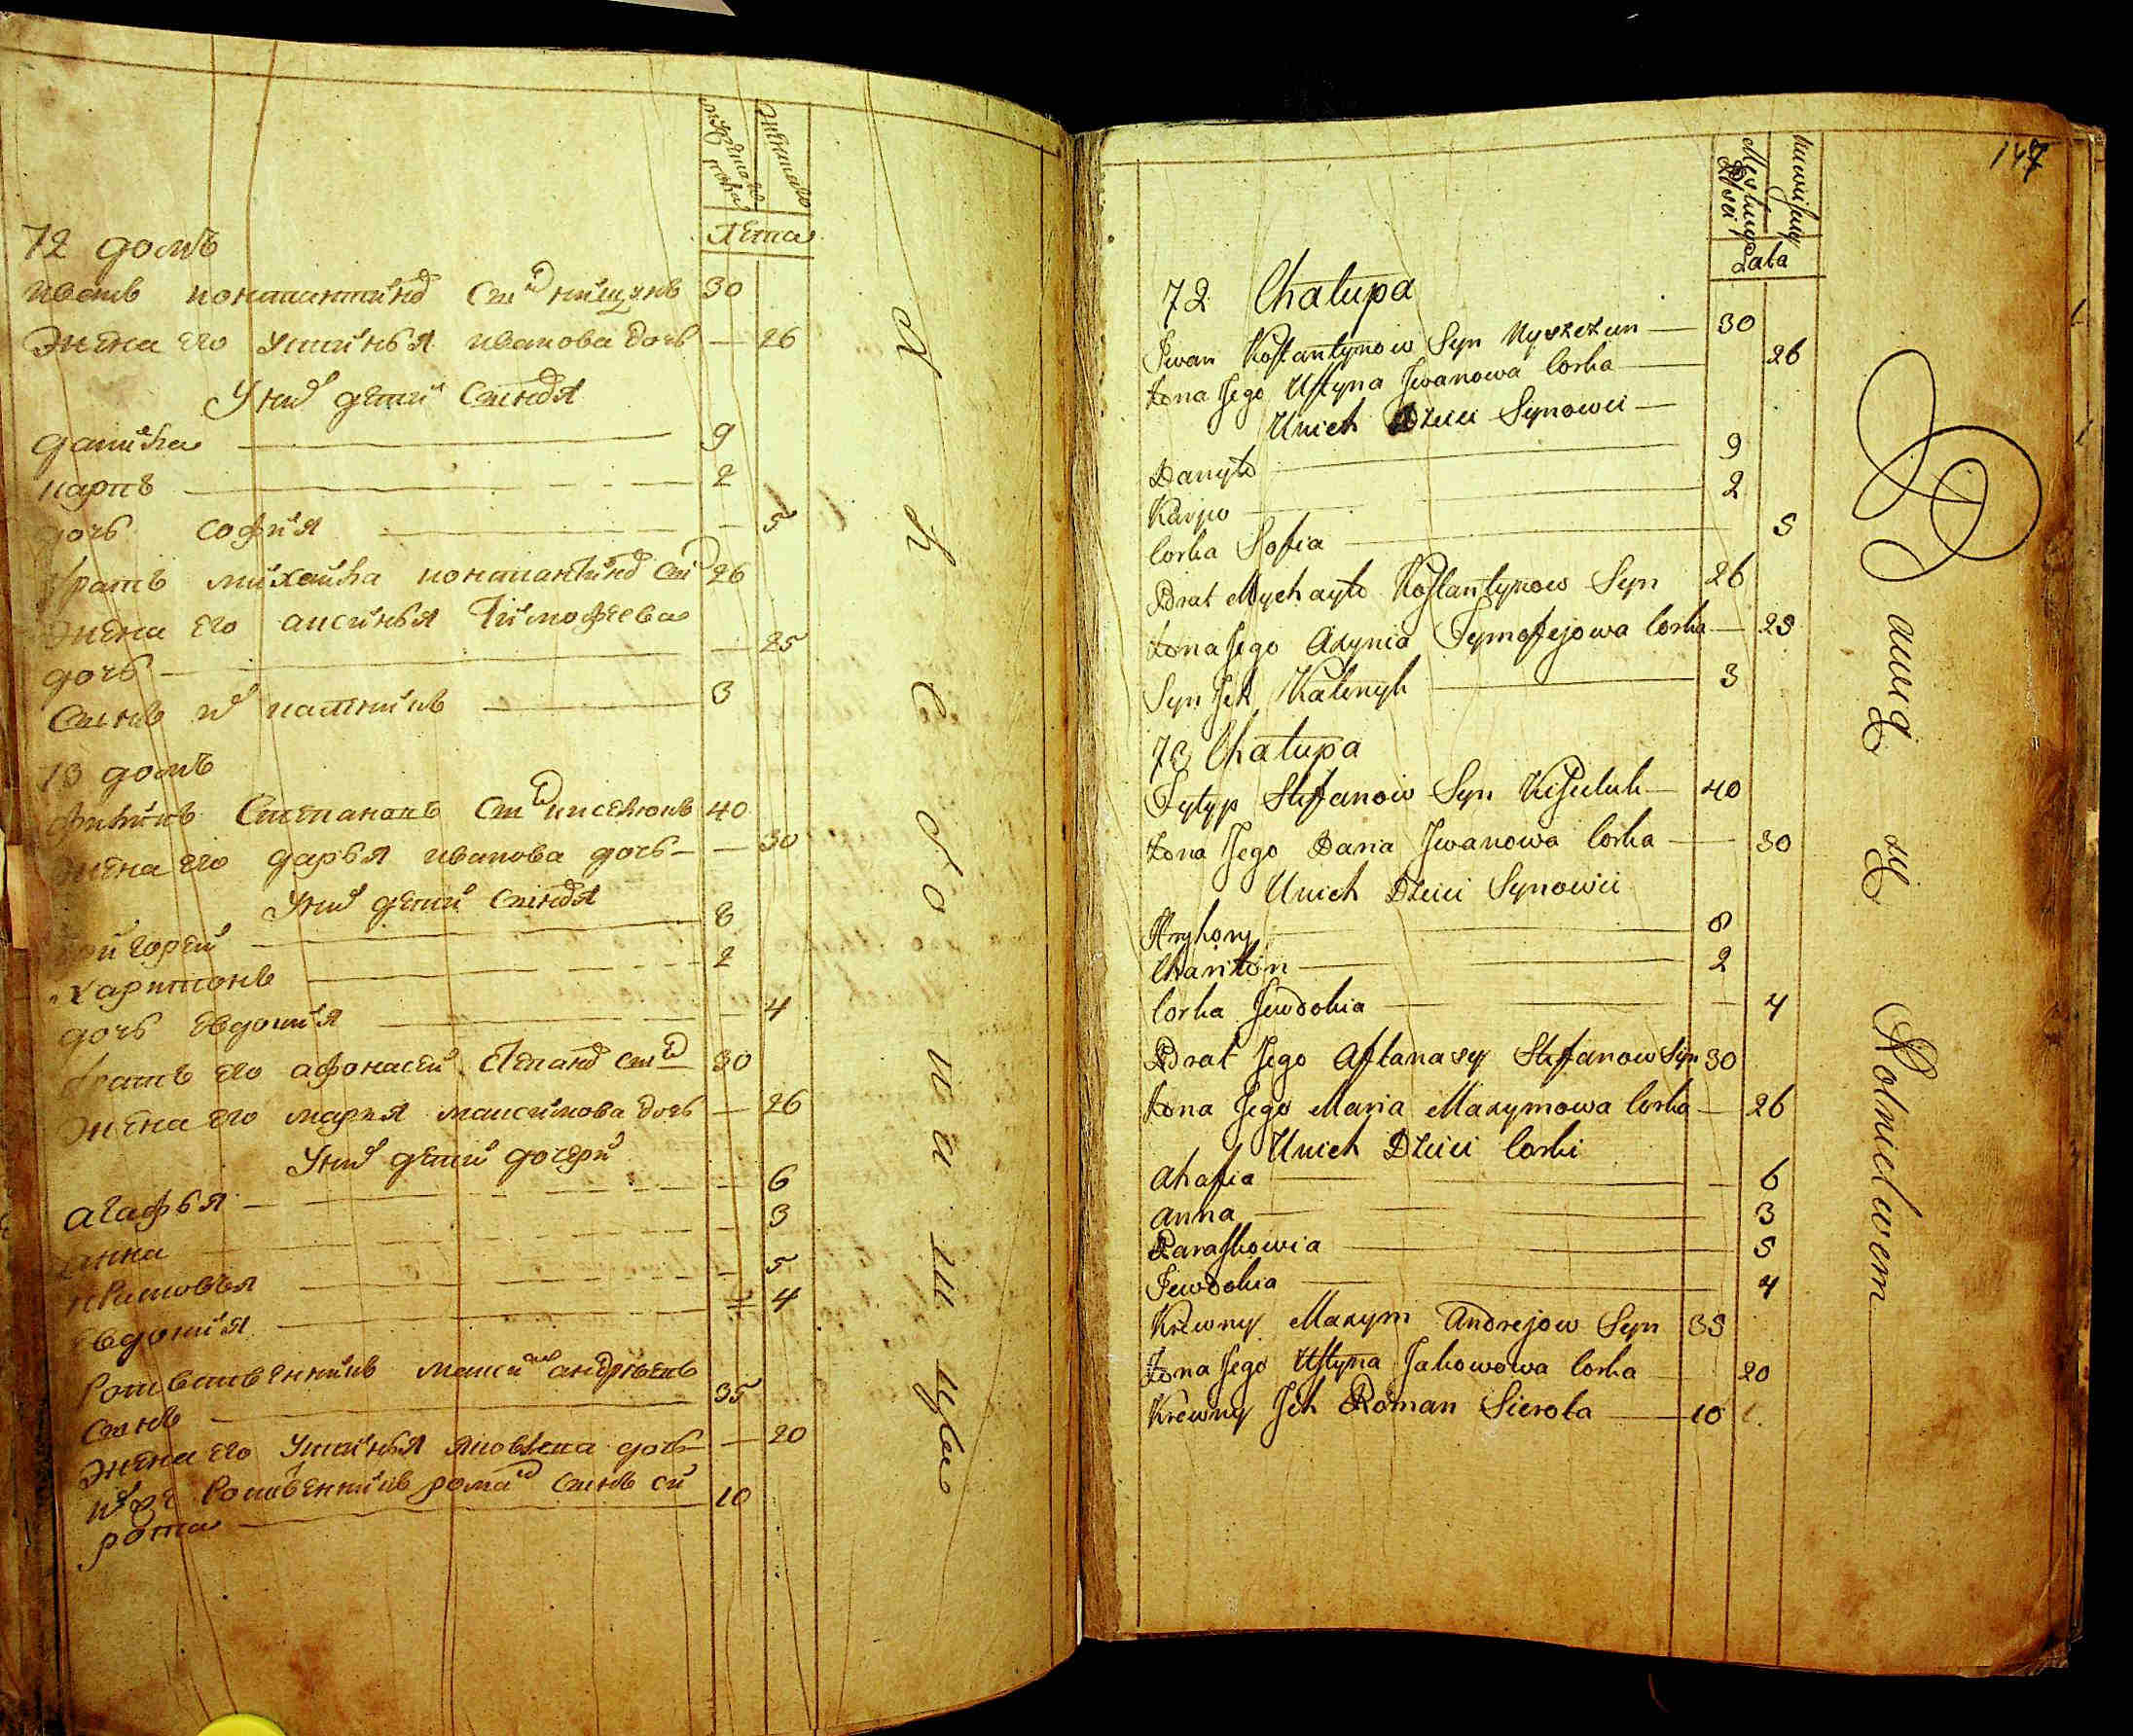 лета
72 домъ
иванъ константинов сын нищунъ 30
жена его устинья иванова дочь — 26
У них детей сыновя
данила 9
карпъ 2
дочь софия — 5
братъ михаила константинов сын 26
жена его аксинья тимофеева
дочь — 25
сынъ их калиникъ 3
73 домъ
филипъ степановъ сын киселюкъ 40
жена его дарья иванова дочь — 30
У них детей сыновя
григорей 8
харитонъ 2
дочь евдокия — 4
братъ его афонасей степанов сын 30
жена его мария максимова дочь — 26
У них детей дочери
агафья — 6
анна — 3
5
евдокия — 4
максим андреевъ
сынъ 35
жена его устинья яковлева дочь — 20
роман сынъ си
рота 10
147
Męskiey Płci
Lata
72 Chałupa
Jwan Kostantynow Syn Nyszczun — 30
Żona Jego Ustyna Jwanowa Corka — 26
Unich Dzieci Synowei —
Danyło 9
Karpo 2
Corka Sofia 5
Brat Mychayło Kostantynow Syn 26
Żona Jego Axynia Tymofejowa Corka — 25
Syn Jch Kalenyk 3
73 Chałupa
Fylyp Stefanow Syn Kisieluk — 40
Żona Jego Daria Jwanowa Corka — 30
Unich Dzieci Synowii
Hryhory 8
Chariton 2
Corka Jewdokia — 4
Brat Jego Aftanazy Stefanow Syn 30
Żona Jego Maria Maxymowa Corka — 26
Unich Dzieci Corki
Ahafia — 6
Anna 3
Paraskowia 5
Jewdokia 4
Krewny Maxym Andrejow Syn 35
Żona Jego Ustyna Jakowowa Corka 20
Krewny Jch Roman Sierota — 10
Pana